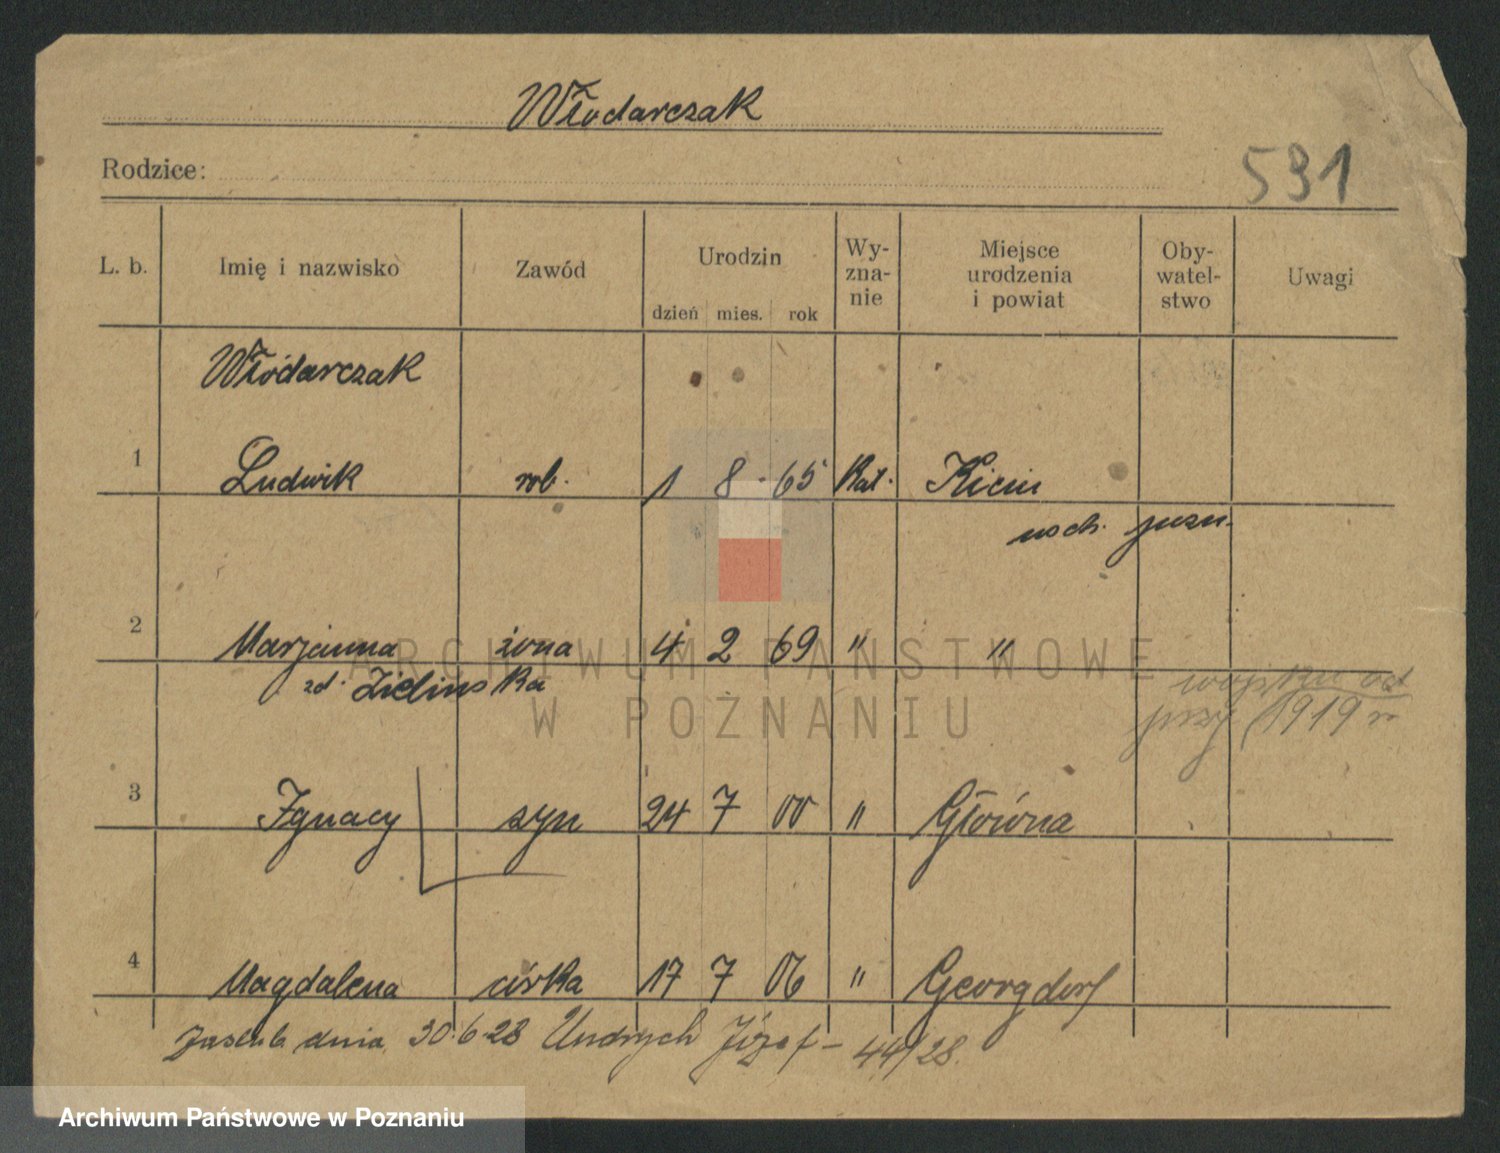 Włodarczak
Rodzice:
591
L. b. Imię i nazwisko Zawód Urodzin dzień mies. rok Wy-zna-nie Miejsce urodzenia i powiat Oby-watel-stwo Uwagi
Włodarczak
1 Ludwik rob. 1 8 65 Kat. Kicin
wsch. pozn.
2 Marjanna żona 4 2 69 " "
zd. Zielinska
1919 r
3 Ignacy syn 24 7 00 " Główna
4 Magdalena córka 17 7 06 " Georgdorf
zaślub. dnia 30.6.28 Undrych Józef - 44/28.
ARCHIWUM PAŃSTWOWE
W POZNANIU
Archiwum Państwowe w Poznaniu